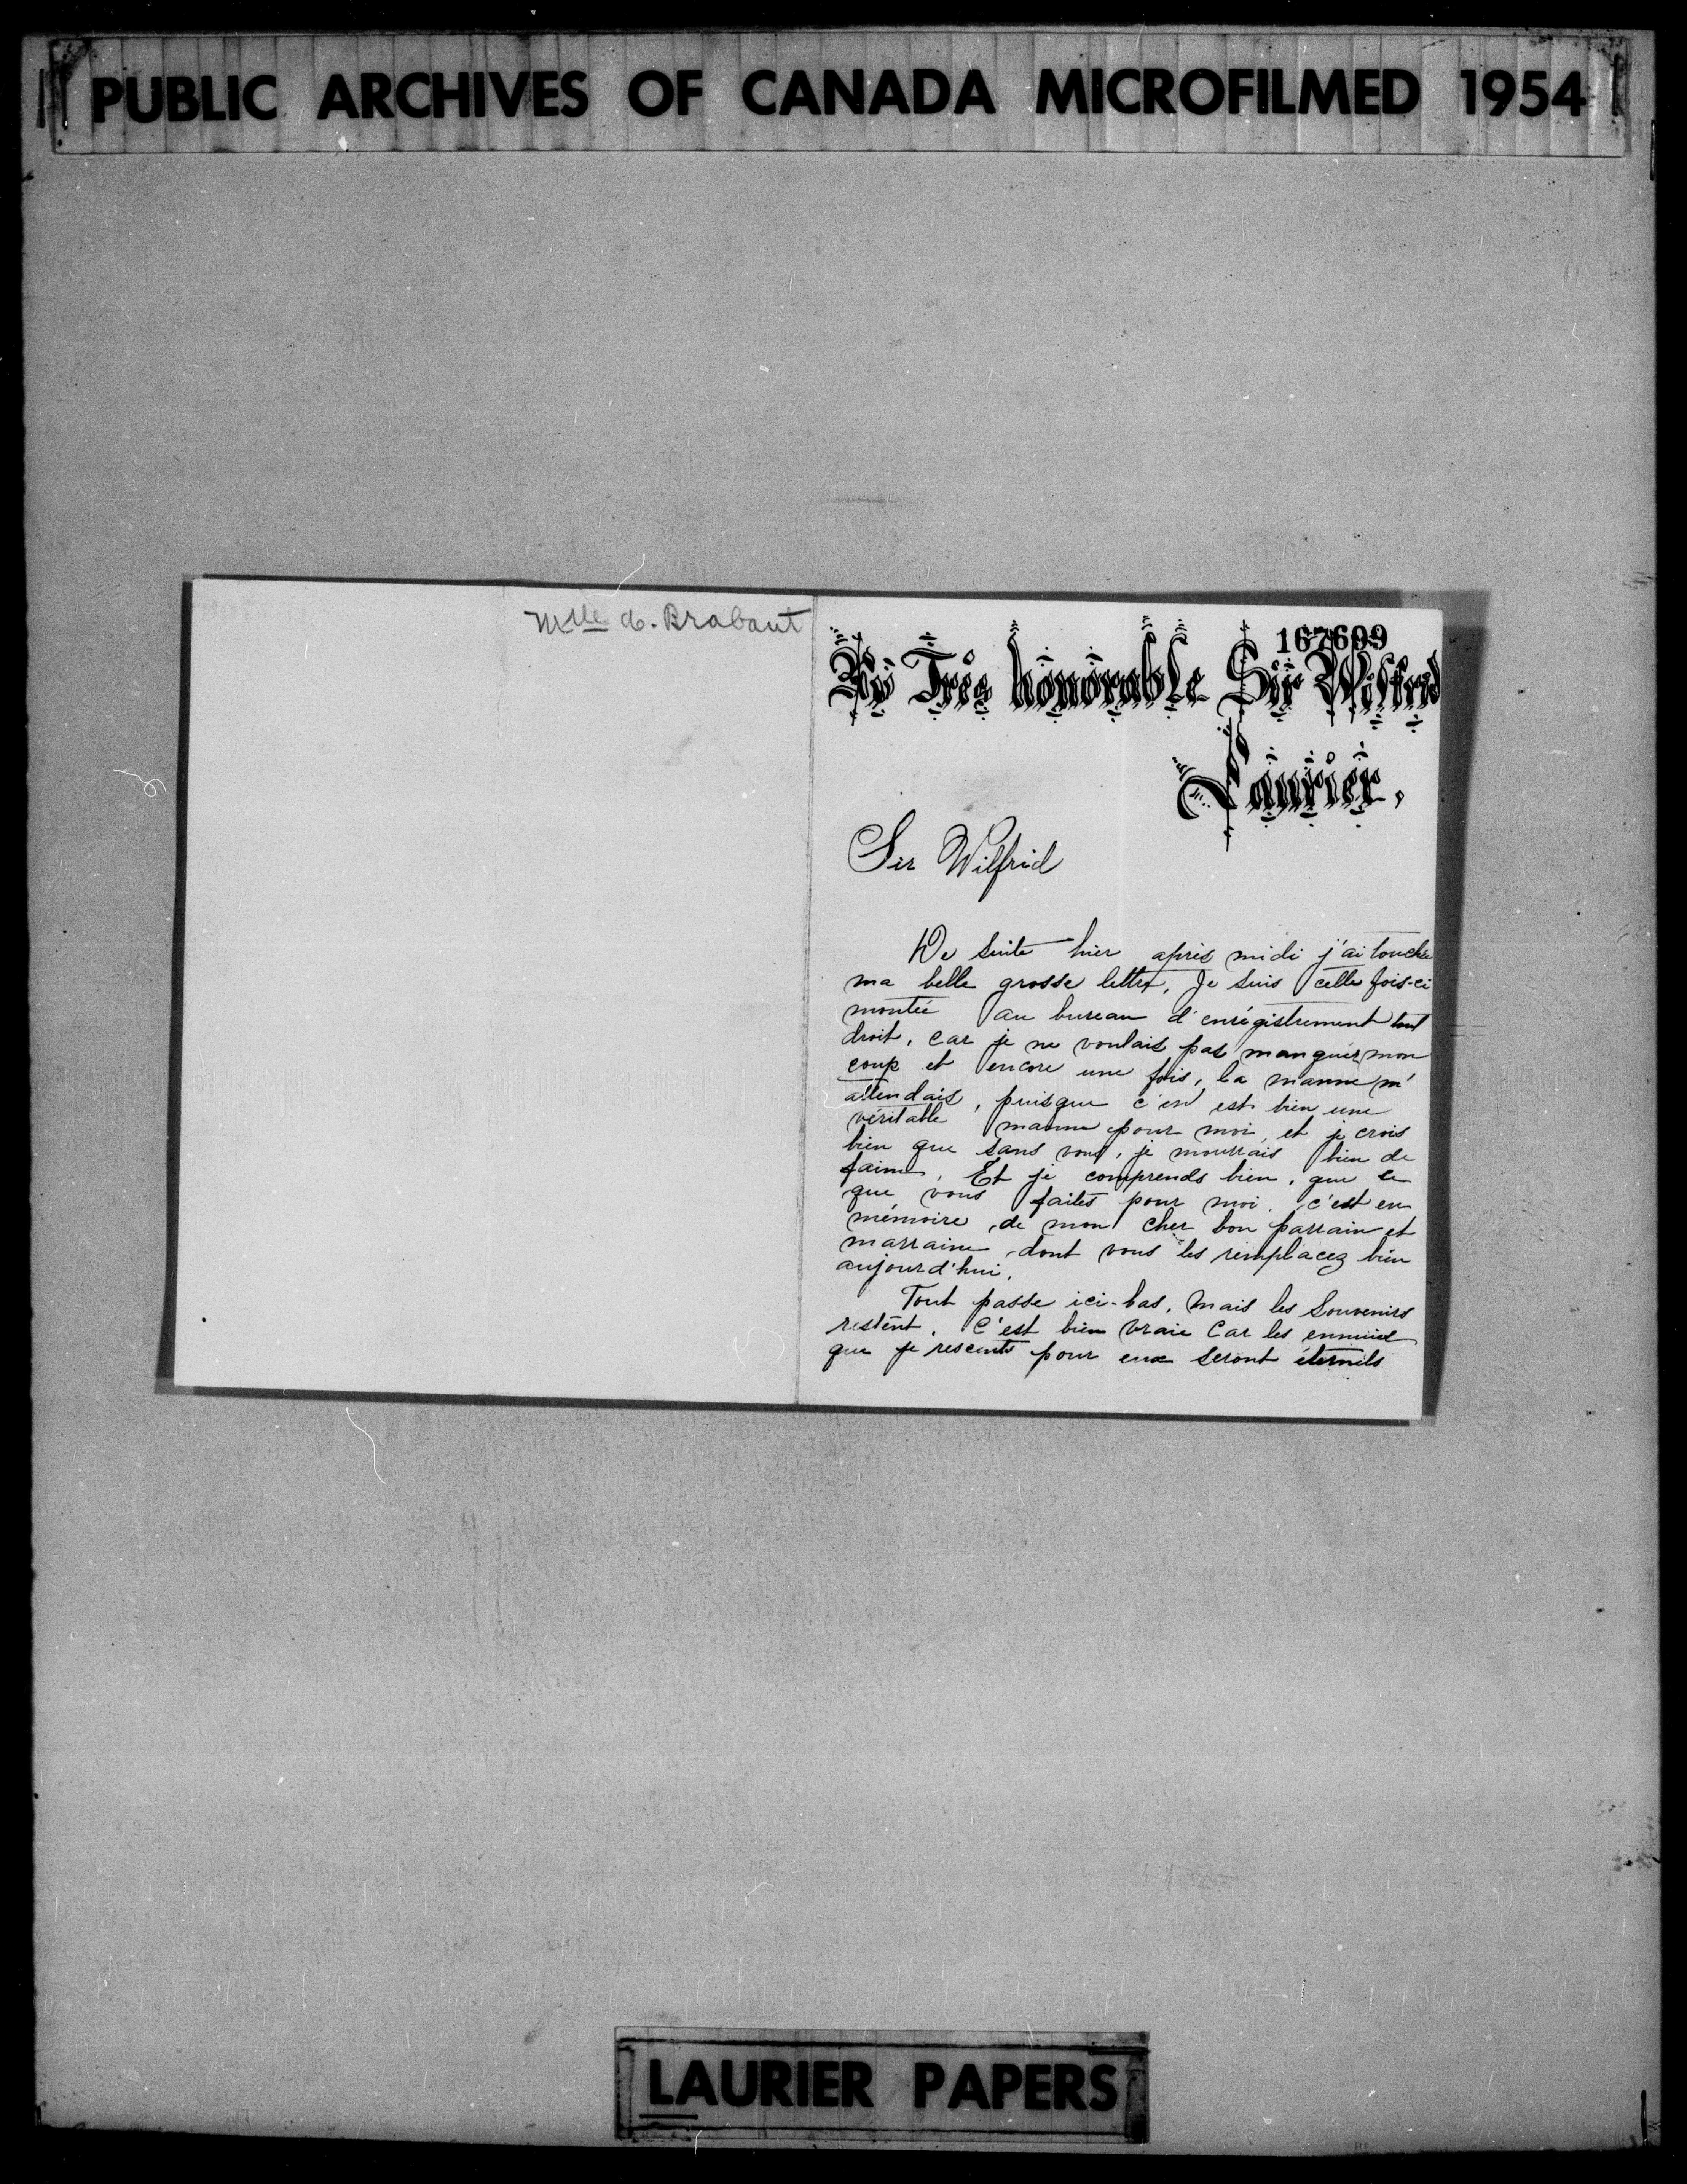 PUBLIC ARCHIVES OF CANADA MICROFILMED 1954
Mlle A. Brabant
167699
Au Très honorable Sir Wilfrid
Laurier,
Sir Wilfrid
De suite hier après midi j'ai touchée
ma belle grosse lettre, Je suis cette fois-ci
montée au bureau d'enrégistrement tout
droit, car je ne voulais pas manquer mon
coup et encore une fois, la manne m'
attendais, puisque c'en est bien une
véritable manne pour moi, et je crois
bien que sans vous, je mourrais bien de
faim. Et je comprends bien, que ce
que vous faites pour moi, c'est en
mémoire de mon cher bon parrain et
marraine dont vous les remplacez bien
aujourd'hui.
Tout passe ici-bas, mais les Souvenirs
restent. C'est bien vraie Car les ennuies
que je rescents pour eux seront éternels
LAURIER PAPERS